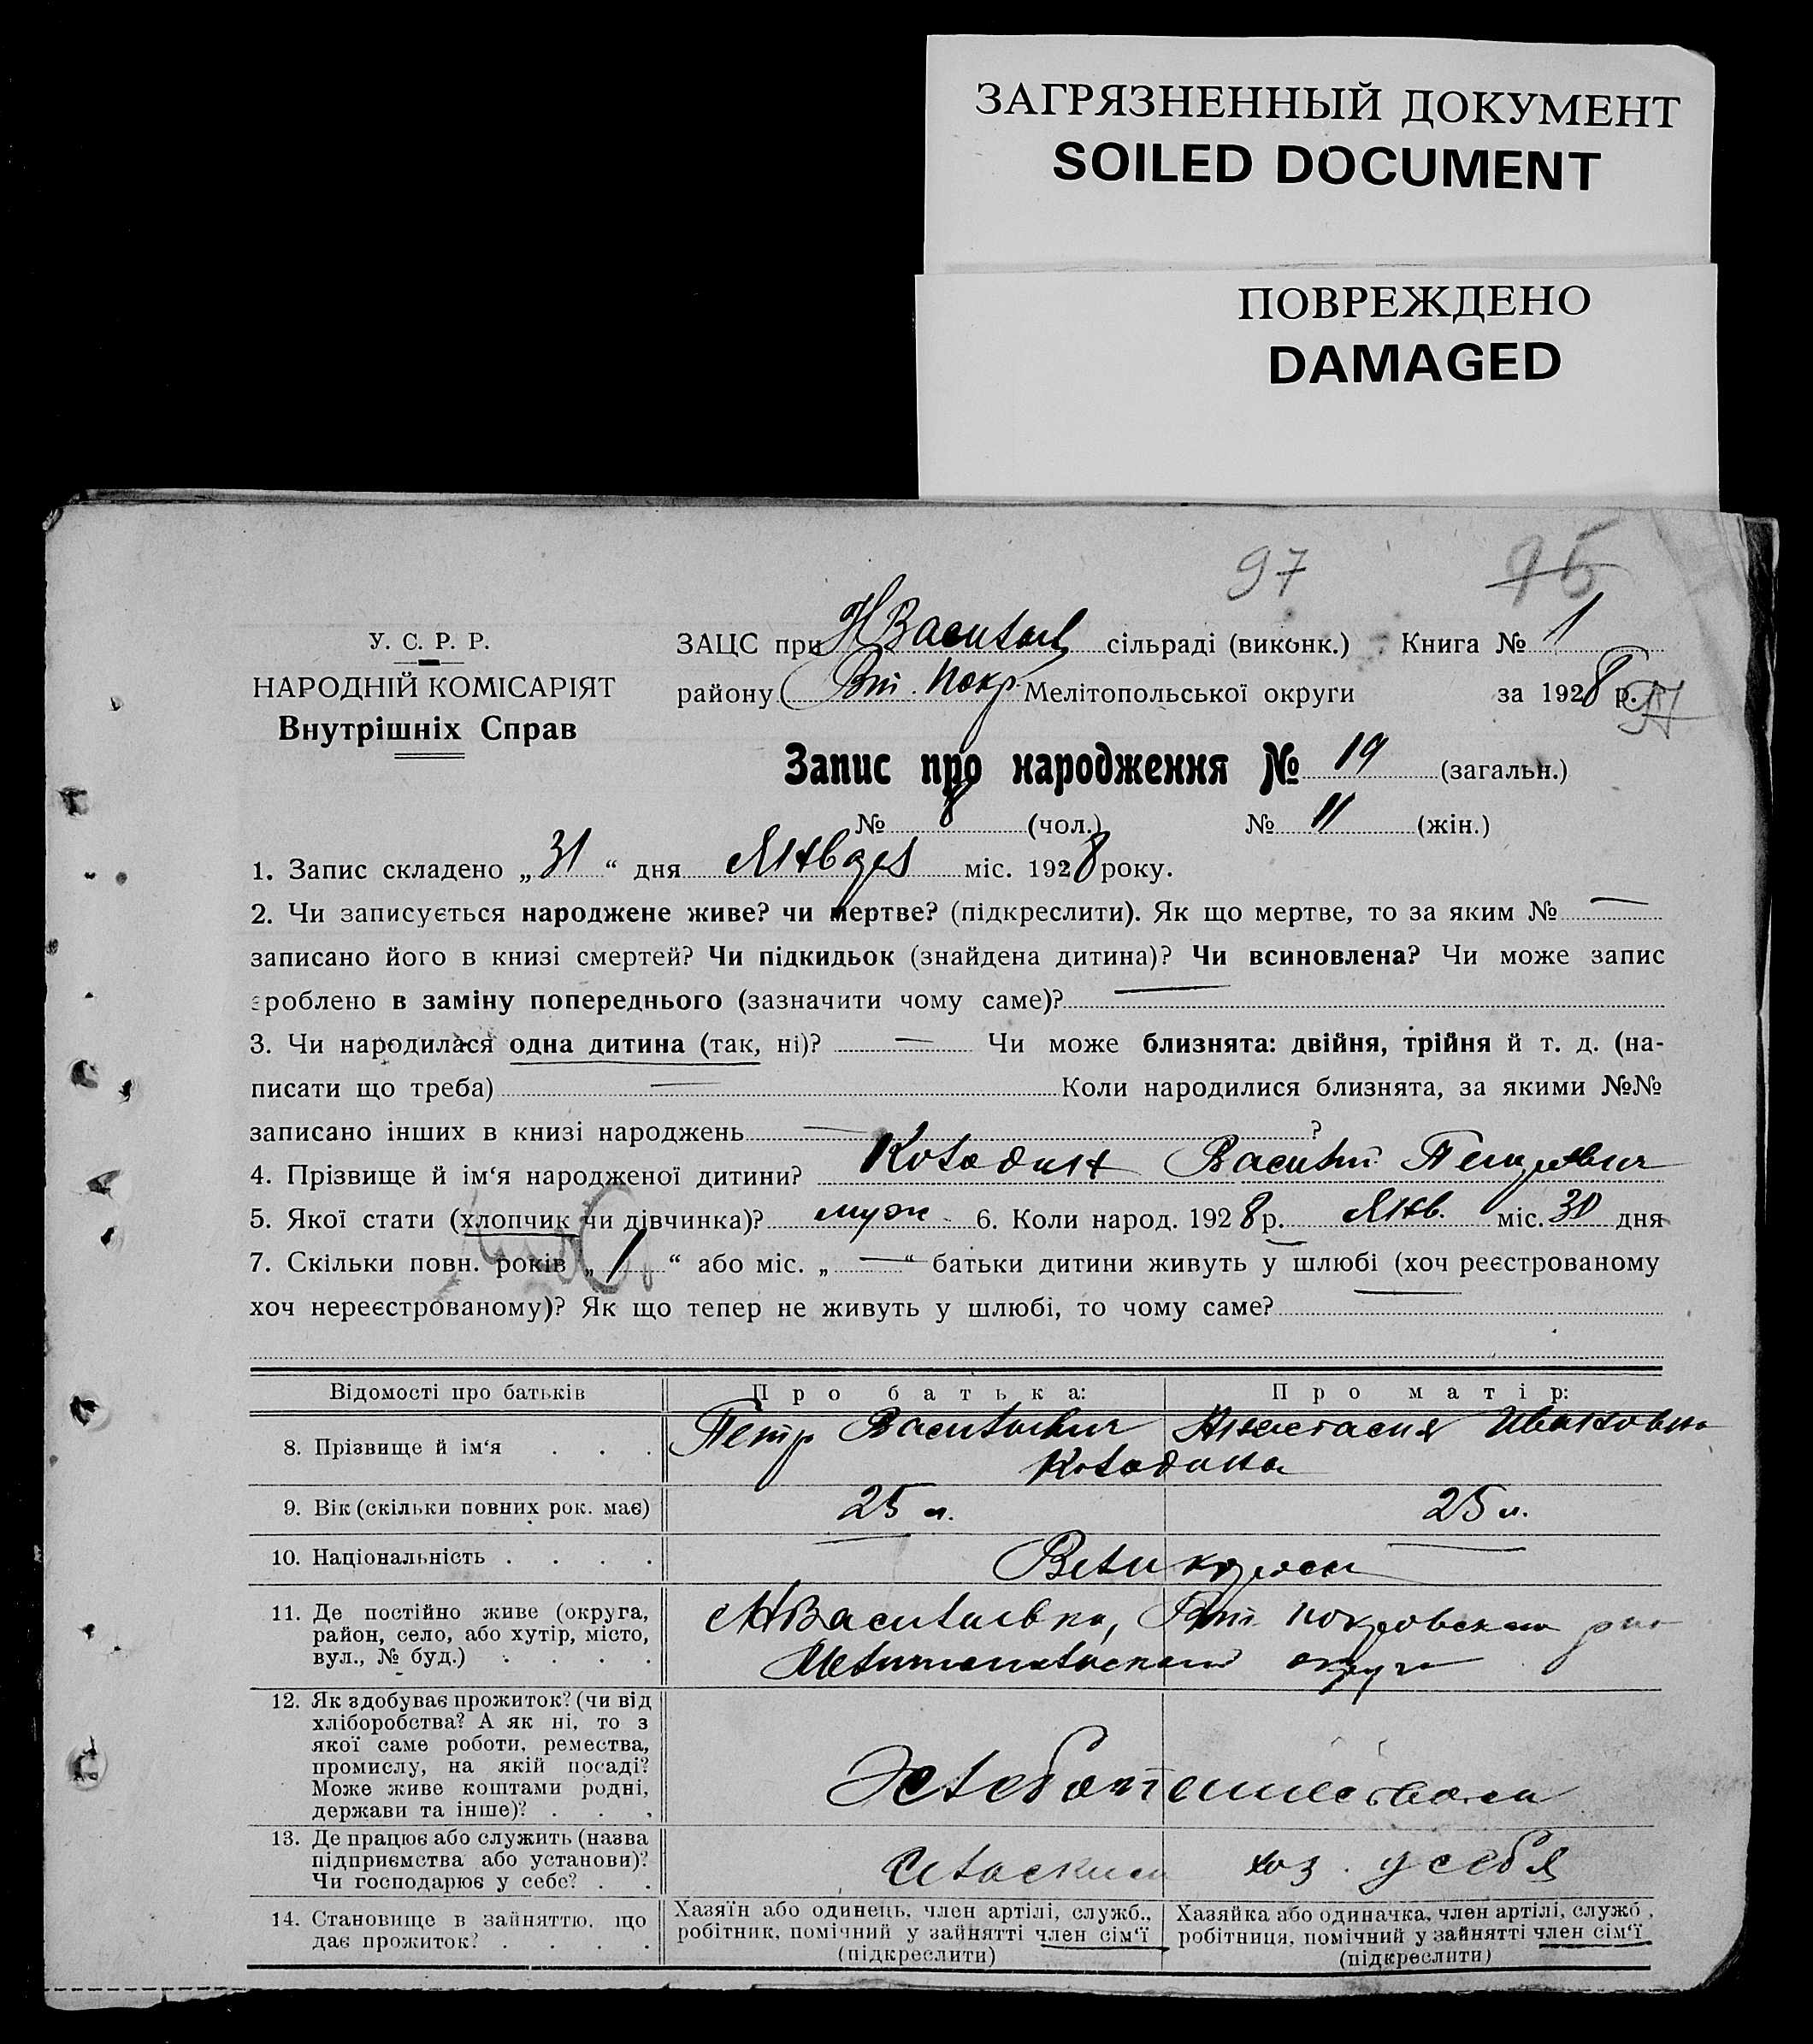 ЗАГРЯЗНЕННЫЙ ДОКУМЕНТ
SOILED DOCUMENT
ПОВРЕЖДЕНО
DAMAGED
97 95
У. С. Р. Р.
НАРОДНІЙ КОМІСАРІЯТ
Внутрішніх Справ
ЗАЦС при НВасильев сільраді (виконк.) Книга № 1
району Вт. Покр. Мелітопольської округи за 1928 р.
97
Запис про народження № 19 (загальн.)
№ 8 (чол.) № 11 (жін.)
1. Запис складено „ 31 “ дня Января міс. 1928 року.
2. Чи записується народжене живе? чи мертве? (підкреслити). Як що мертве, то за яким № —
записано його в книзі смертей? Чи підкидьок (знайдена дитина)? Чи всиновлена? Чи може запис
зроблено в заміну попереднього (зазначити чому саме)? —
3. Чи народилася одна дитина (так, ні)? — Чи може близнята: двійня, трійня й т. д. (на-
писати що треба) — Коли народилися близнята, за якими №№
записано інших в книзі народжень — ?
4. Прізвище й ім‘я народженої дитини? Колодин Василий Петрович
5. Якої стати (хлопчик чи дівчинка)? муж 6. Коли народ. 1928 р. Янв. міс. 30 дня
7. Скільки повн. років „ 1 “ або міс. „ — “ батьки дитини живуть у шлюбі (хоч реєстрованому
хоч нереєстрованому)? Як що тепер не живуть у шлюбі, то чому саме? —
Відомості про батьків Про батька: Про матір:
8. Прізвище й ім‘я . . . Петр Васильевич Анастасия Ивановна
Колодина
9. Вік (скільки повних рок. має) 25 л. 25 л.
10. Національність . . . . Великороссы
11. Де постійно живе (округа,
район, село, або хутір, місто,
вул., № буд.) . . . .
НВасильевка, Вт. Покровского
Мелитопольской округи
12. Як здобуває прожиток? (чи від
хліборобства? А як ні, то з
якої саме роботи, ремества,
промислу, на якій посаді?
Може живе коштами родні,
держави та інше)? . . .
Хлебопашеством
13. Де працює або служить (назва
підприємства або установи)?
Чи господарює у себе? . .
Сельским хоз. у себя
14. Становище в зайняттю, що
дає прожиток? . . . .
Хазяїн або одинець, член артілі, служб.,
робітник, помічний у зайнятті член сім‘ї
(підкреслити)
Хазяйка або одиначка, член артілі, служб.,
робітниця, помічний у зайнятті член сім‘ї
(підкреслити)